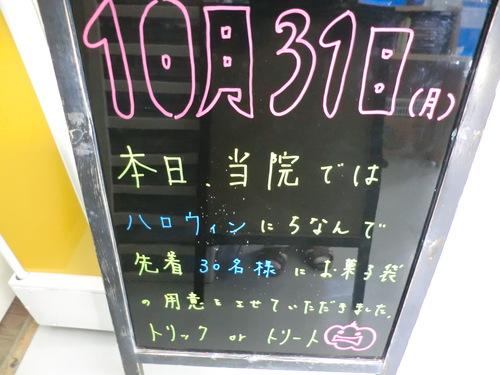 10月31日(月)
本日、当院では
ハロウィンにちなんで
先着30名様にお菓子袋
の用意をさせていただきました。
トリック or トリート